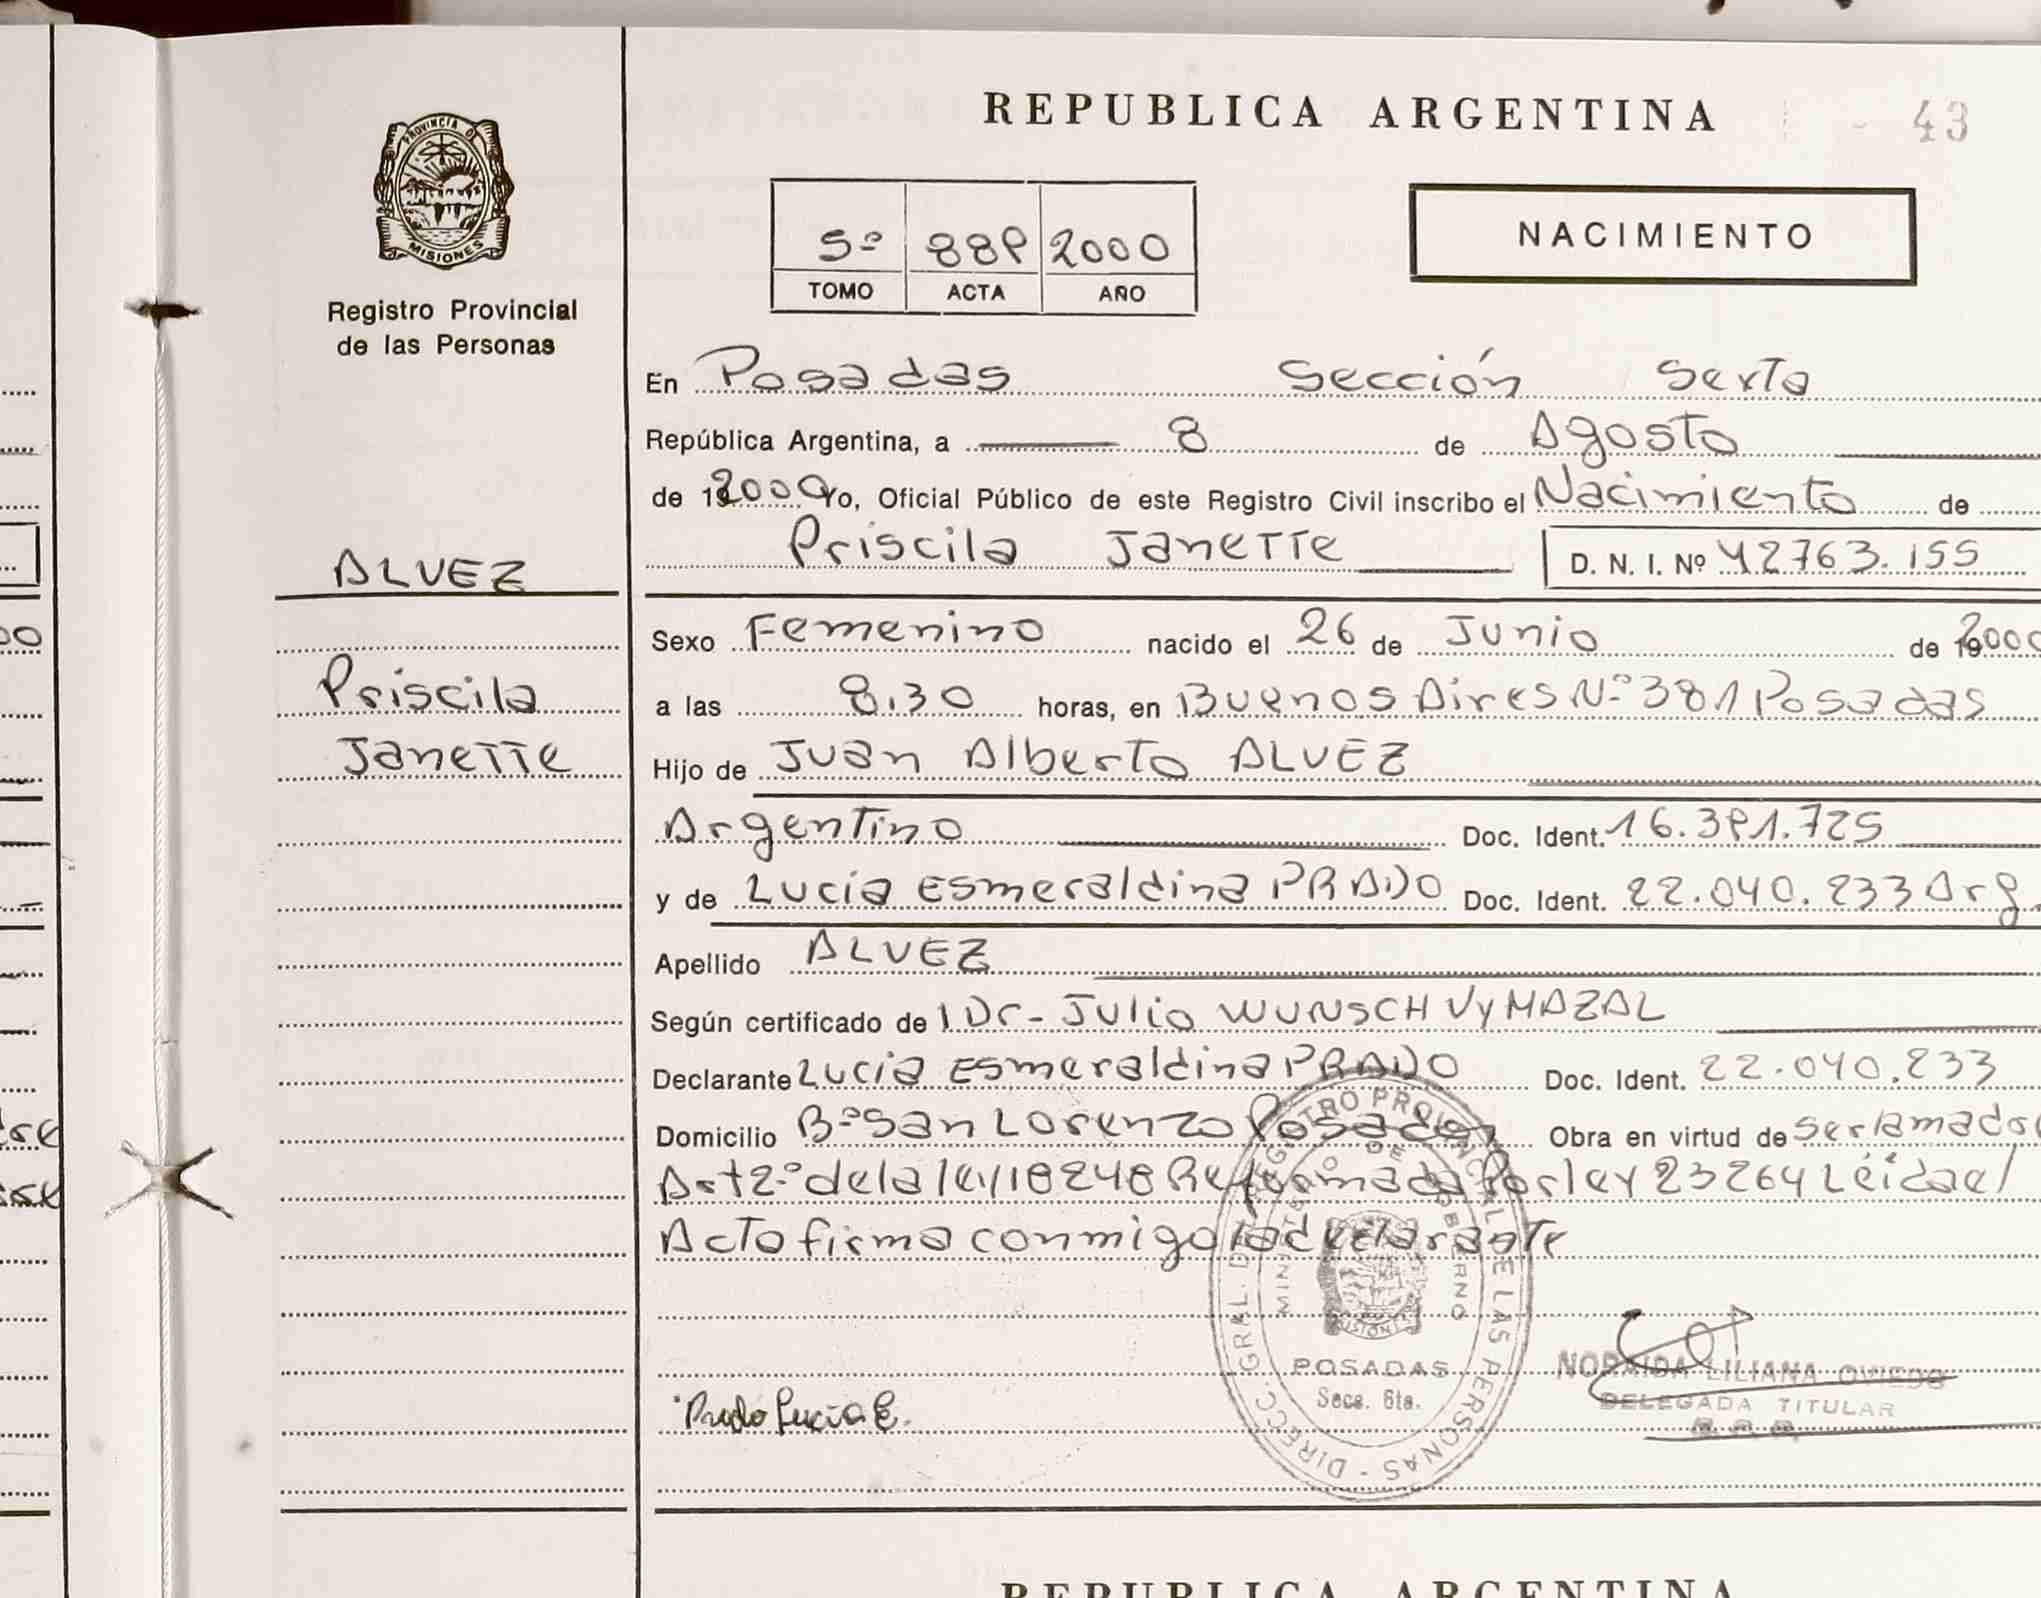 REPUBLICA ARGENTINA
43
PROVINCIA DE
MISIONES
Registro Provincial
de las Personas
5º 889 2000
TOMO ACTA AÑO
NACIMIENTO
En Posadas Sección Serta
República Argentina, a 8 de Agosto
de 2000 Yo, Oficial Público de este Registro Civil inscribo el Nacimiento de
Priscila Janette D. N. I. Nº 42763.155
ALVEZ
Priscila
Janette
Sexo Femenino nacido el 26 de Junio de 2000
a las 8.30 horas, en Buenos Aires Nº 381 Posadas
Hijo de Juan Alberto ALVEZ
Argentino Doc. Ident. 16.391.725
y de Lucía Esmeraldina PRADO Doc. Ident. 22.040.233 Arg.
Apellido ALVEZ
Según certificado de Dr- Julio WUNSCH VYMAZAL
Declarante Lucía Esmeraldina PRADO Doc. Ident. 22.040.233
Domicilio Bº San Lorenzo Posadas Obra en virtud de ser la madre
Art 2º de la ley 18248 Reformada Por ley 23264 Leída el
Acto firma conmigo la declarante
DIRECC. GRAL. DEL REGISTRO PROVINCIAL DE LAS PERSONAS
MINISTERIO DE GOBIERNO
MISIONES
POSADAS
Secc. 6ta.
Prado Lucía E.
NORMIDA LILIANA OVIEDO
DELEGADA TITULAR
REPUBLICA ARGENTINA